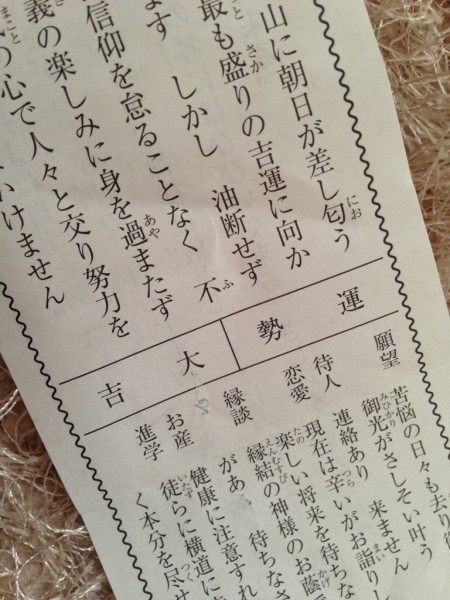 山に朝日が差し匂う
最も盛りの吉運に向か
ます しかし 油断せず
信仰を怠ることなく 不
義の楽しみに身を過またず
の心で人々と交り努力を
いけません
運勢
大吉
願望 苦悩の日々も去り
御光がさしそい叶う
待人 連絡あり 来ません
恋愛 現在は辛いがお詣りし
楽しい将来を待ちな
縁談 縁結の神様のお蔭
があ 待ちな
お産 健康に注意すれ
進学 徒らに横道に
く本分を尽せ